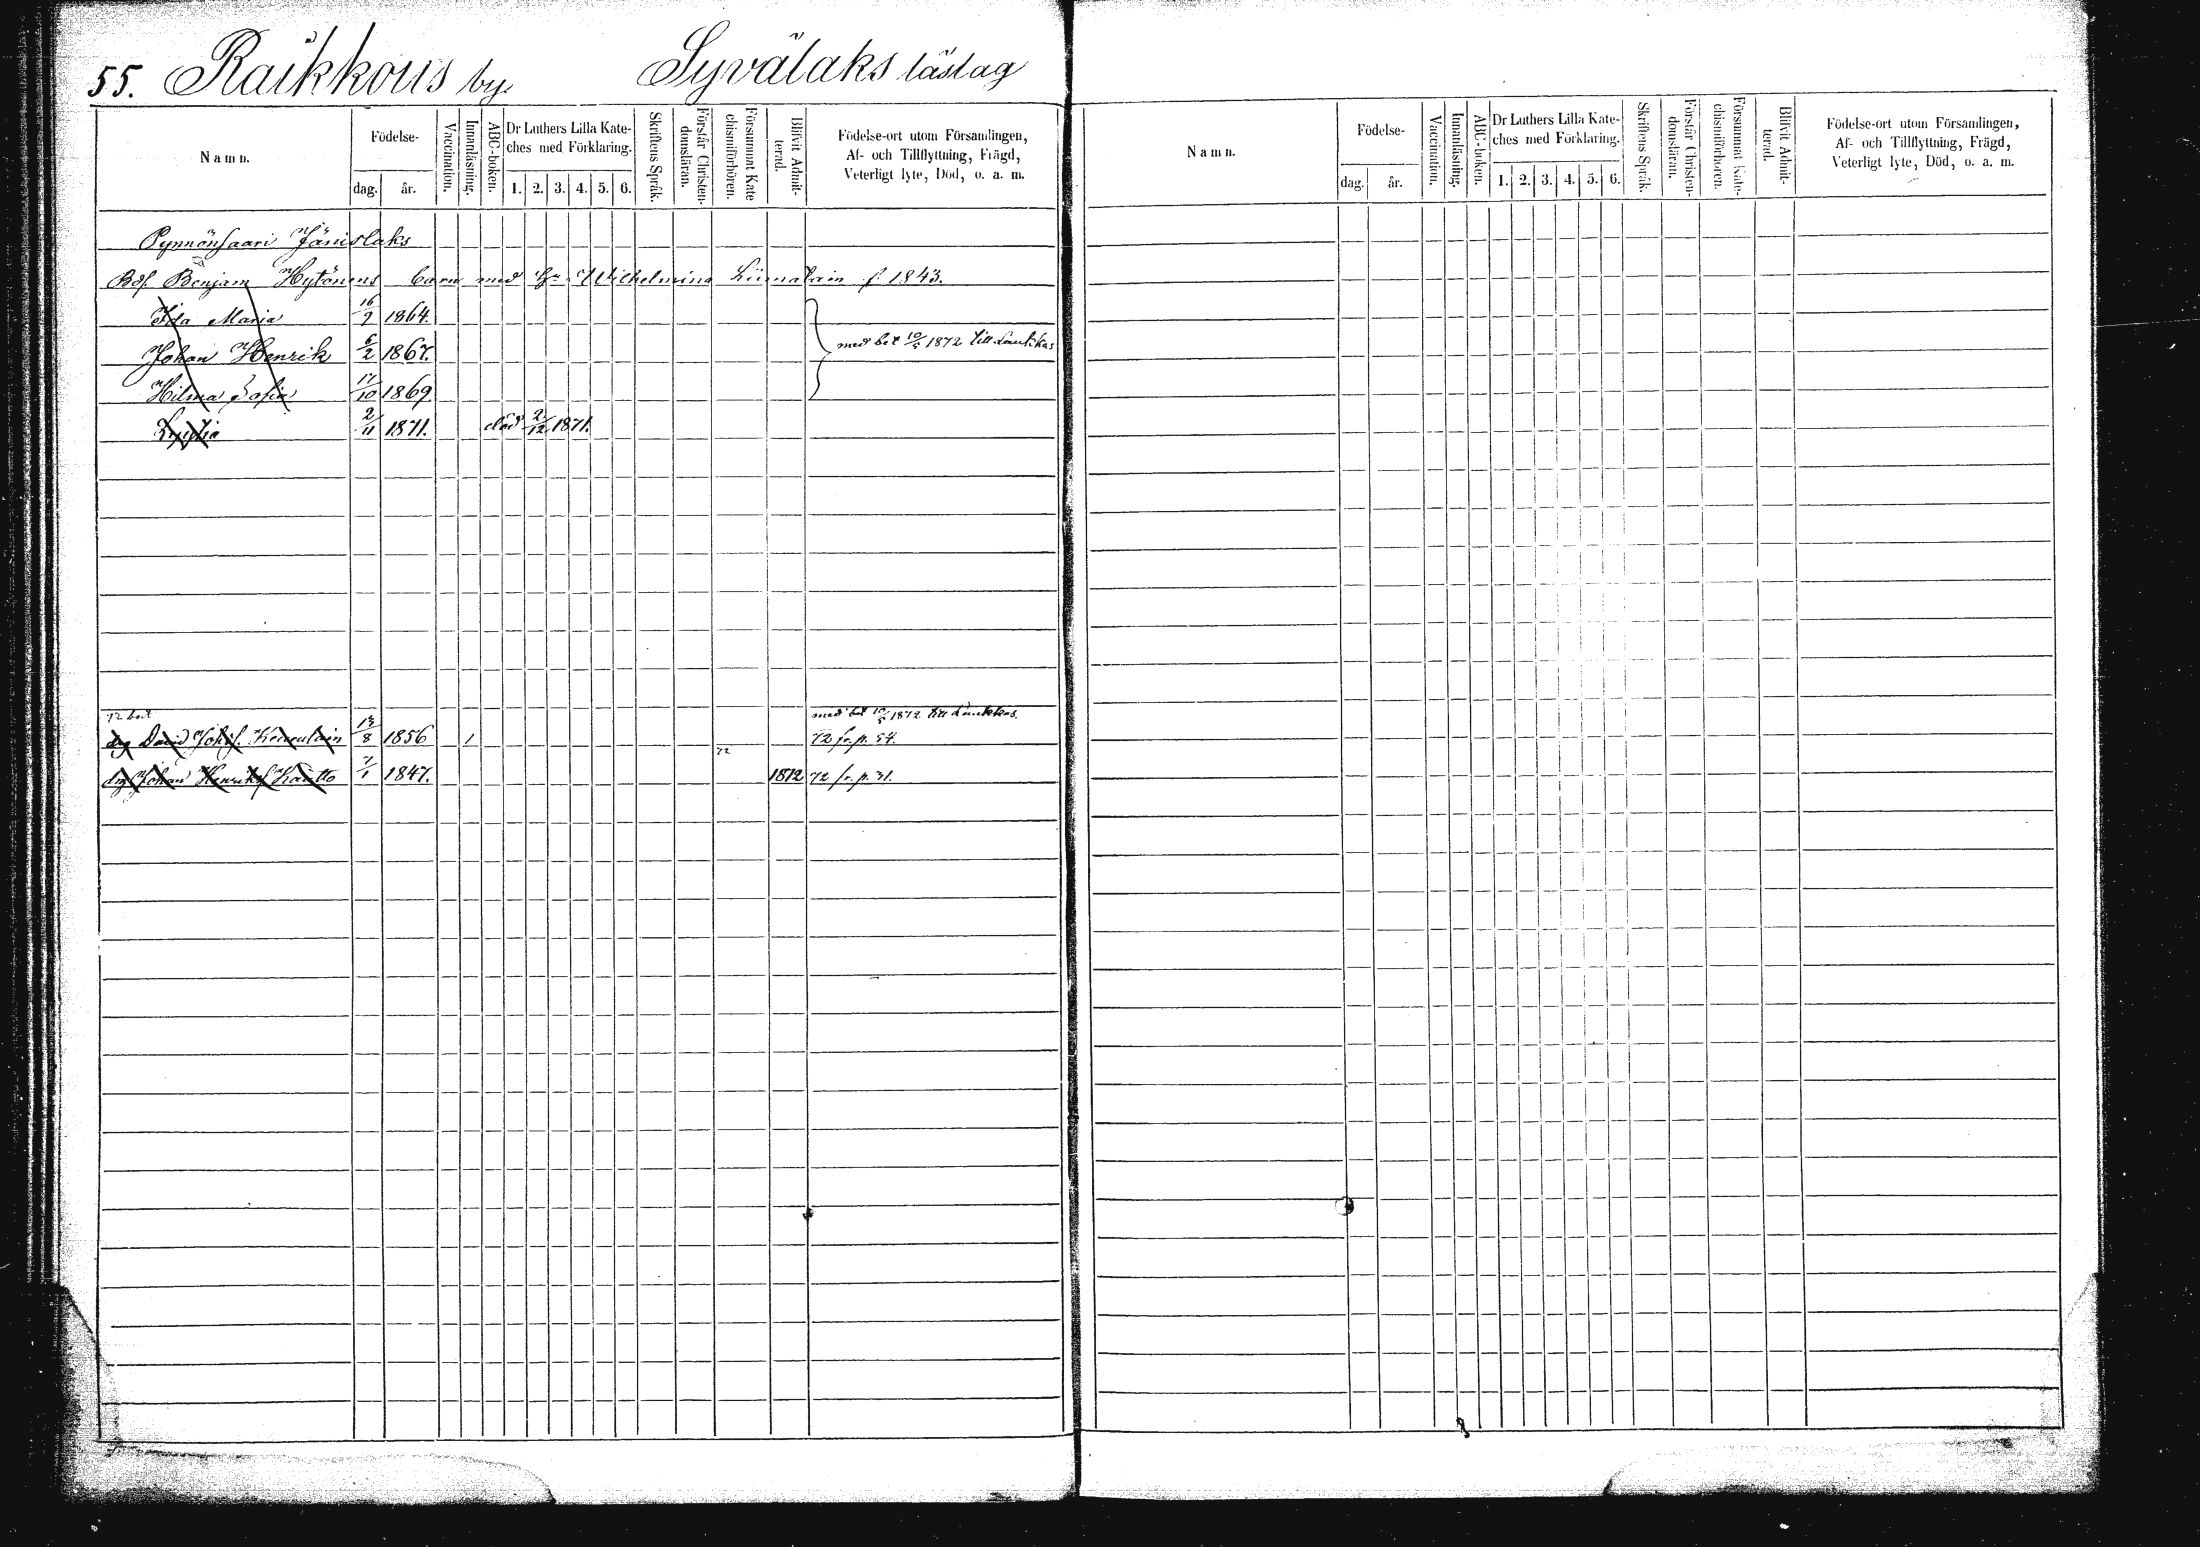 55. Raikkous by. Syvälaks läslag
Namn. Födelse- dag. år. Vaccination. Innanläsning. ABC-boken. Dr Luthers Lilla Kate-ches med Förklaring. 1. 2. 3. 4. 5. 6. Skriftens Språk. Förstår Christen-domsläran. Försummat Kate chismiförhören. Blifvit Admit-terad. Födelse-ort utom Församlingen, Af- och Tillflyttning, Frägd, Veterligt lyte, Död, o. a. m.
Pynnönsaari Jänislaks
Bdf. Benjam Hytönens barn med h. Wilhelmina Liimatain f 1843.
Ida Maria 16/9 1864.
Johan Henrik 6/2 1867. med bet 10/5 1872 till Laukkas
Hilma Sofia 17/10 1869
Lydia 2/11 1871. död 2/12 1871.
72 bort med bet 10/5 1872 till Laukkas.
drg David Johs. 13/8 1856 1 72 fr. p. 54.
72
drg Johan Henriksf Kautto 7/1 1847. 1872 72 fr. p. 31.
Namn. Födelse- dag. år. Vaccination. Innanläsning. ABC-boken. Dr Luthers Lilla Kate-ches med Förklaring. 1. 2. 3. 4. 5. 6. Skriftens Språk. Förstår Christen-domsläran. Försummat Kate-chismiförhören. Blifvit Admit-terad. Födelse-ort utom Församlingen, Af- och Tillflyttning, Frägd, Veterligt lyte, Död, o. a. m.